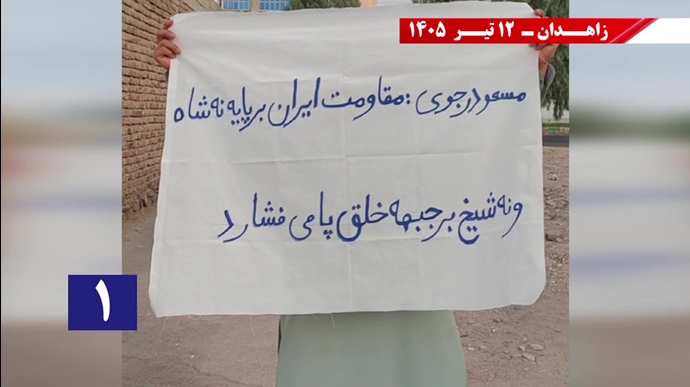 زاهدان - ۱۲ تیر ۱۴۰۵
مسعود رجوی : مقاومت ایران بر پایه نه شاه
و نه شیخ بر جبهه خلق پا می فشارد
۱